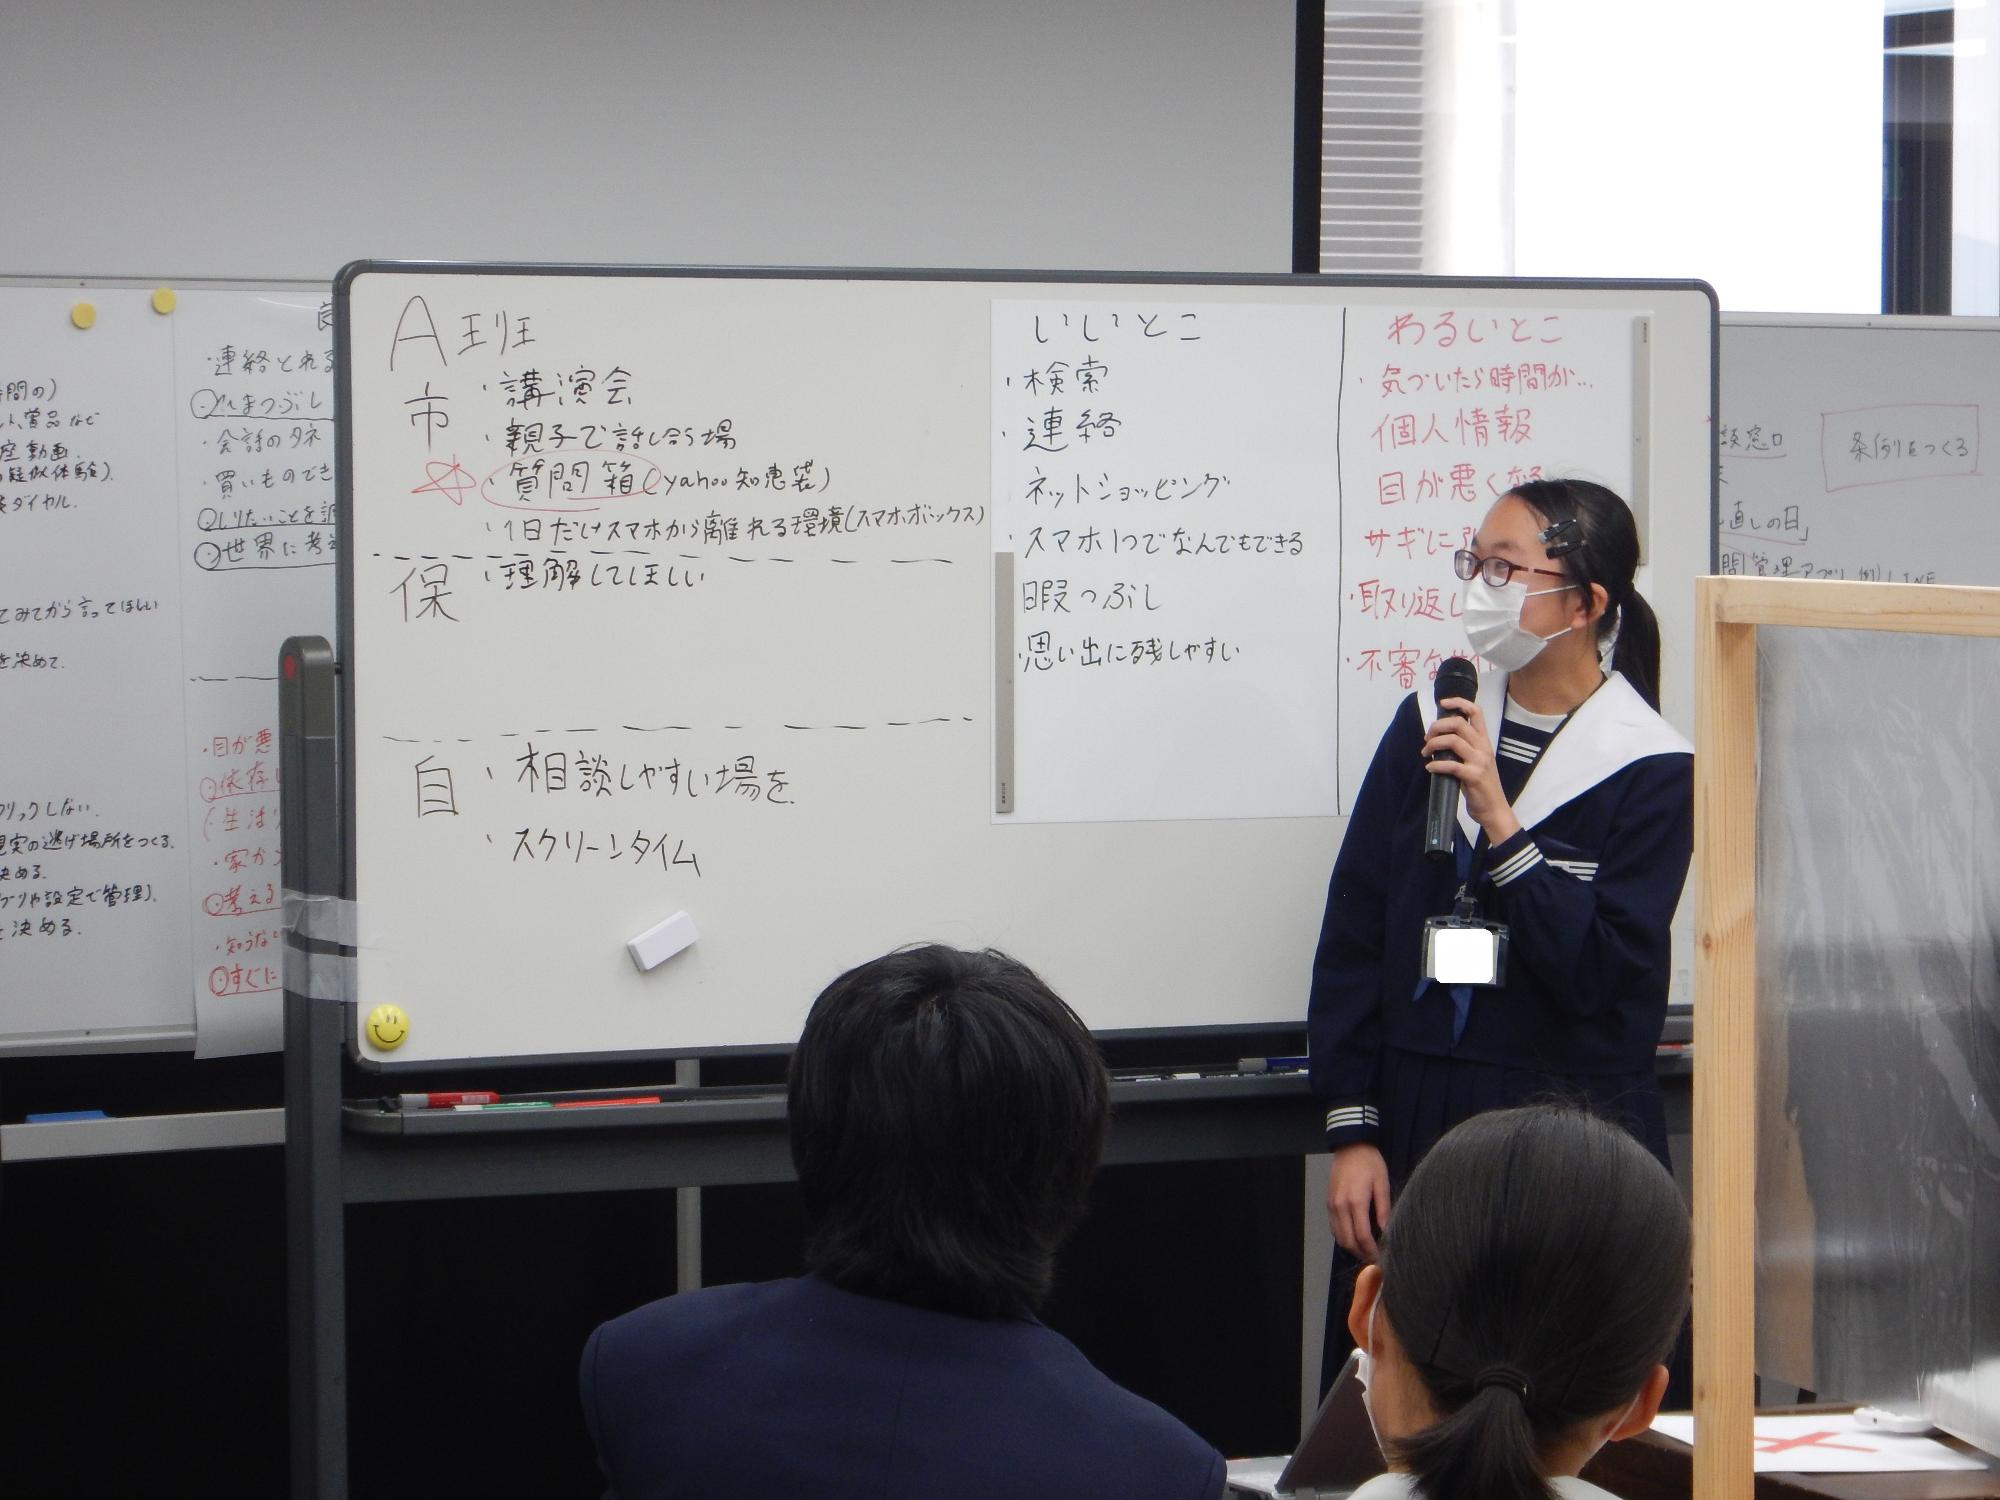 A班
市
・講演会
・親子で話し合う場
・質問箱(yahoo知恵袋)
・1日だけスマホから離れる環境(スマホボックス)
保
・理解してほしい
自
・相談しやすい場を
・スクリーンタイム
いいとこ
・検索
・連絡
ネットショッピング
・スマホ1つでなんでもできる
暇つぶし
・思い出に残しやすい
わるいとこ
・気づいたら時間が…
個人情報
目が悪くなる
サギに
・取り返し
・不審な
時間の)
賞品など
座動画.
疑似体験).
ダイヤル.
てみてから言ってほしい
を決めて.
クリックしない.
現実の逃げ場所をつくる.
決める.
アプリや設定で管理).
決める.
・連絡とれる
ひまつぶし
・会話のタネ
・買いものでき
しりたいことを調
世界に
・目が悪
依存
(生活
・家から
考える
・知らな
すぐに
談窓口
条例をつくる
直しの日」
間管理アプリ 例)LINE